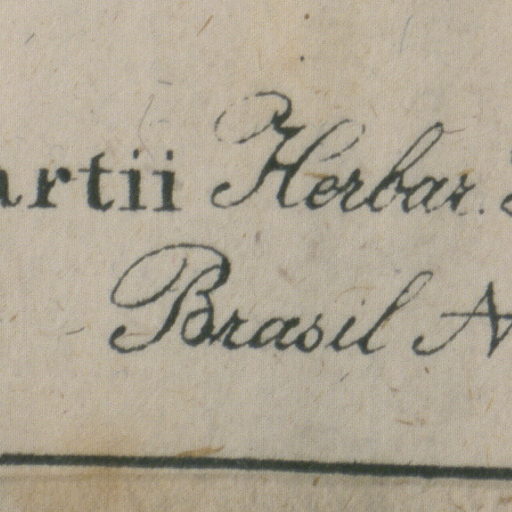 artii Herbar.
Brasil N